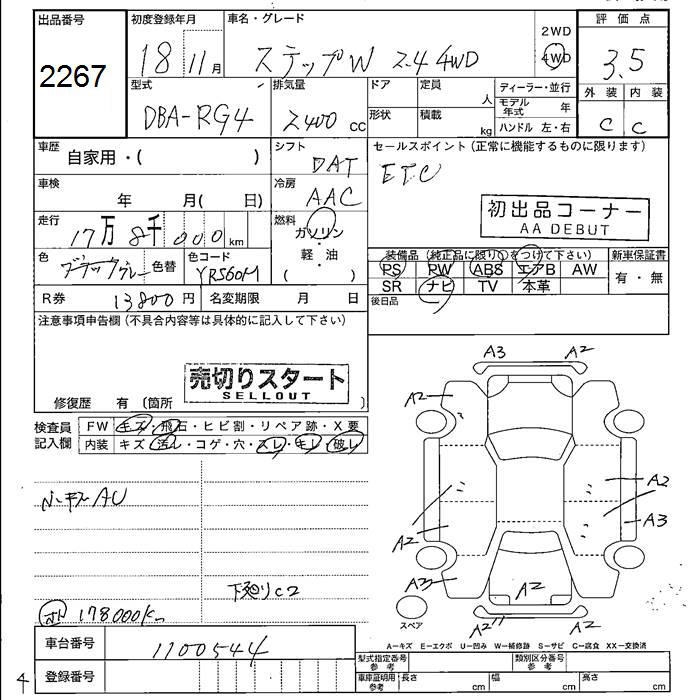 出品番号 初度登録年月 車名・グレード 評価点
2267
18 11月 ステップW 2.4 4WD
2WD
4WD
3.5
型式 排気量 ドア 定員 人 ディーラー・並行 外装 内装
モデル年式 年
DBA-RG4 2400 cc 形状 積載 kg ハンドル 左・右 C C
車歴 自家用・( ) シフト DAT セールスポイント (正常に機能するものに限ります)
ETC
車検 年 月( 日) 冷房 AAC
初出品コーナー
AA DEBUT
走行 17万8千000km 燃料 ガソリン・軽・油 ( )
色 グレー 色替 色コード YR560M
装備品 (純正品に限り○をつけて下さい) 新車保証書
PS PW ABS エアB AW 有・無
SR ナビ TV 本革
R券 13800円 名変期限 月 日 後日品
注意事項申告欄 (不具合内容等は具体的に記入して下さい)
売切りスタート
SELLOUT
修復歴 有 (箇所 )
検査員記入欄 FW キズ・飛石・ヒビ割・リペア跡・X要
内装 キズ・汚れ・コゲ・穴・スレ・キレ・破レ
A3 A2
A2 A2
A2
A3
A2
A3 A2
A2
AU
下廻りC2
178000km
スペア
A=キズ E=エクボ U=凹み W=補修跡 S=サビ C=腐食 XX=交換済
車台番号 1100544
型式指定番号 参考 類別区分番号 参考
登録番号
車庫証明用 参考 長さ cm 幅 cm 高さ cm
4